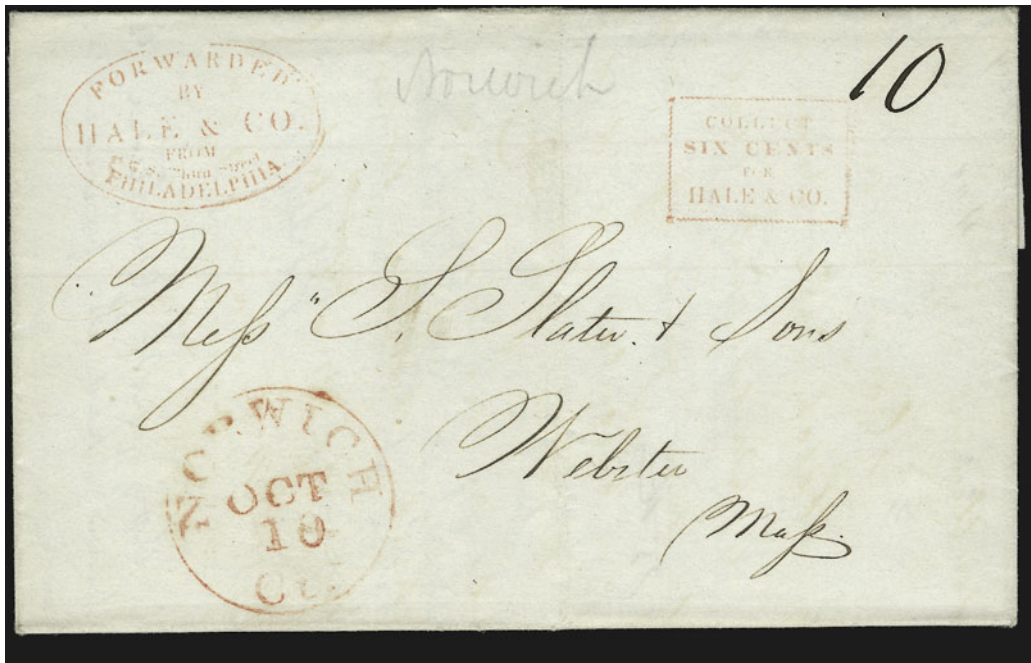 FORWARDED
BY
HALE & CO.
FROM
Third Street
PHILADELPHIA.
Norwich
10
COLLECT
SIX CENTS
FOR
HALE & CO.
Mess " S. Slater. & Sons
Webster
Mass.
NORWICH
OCT
10
Ct.